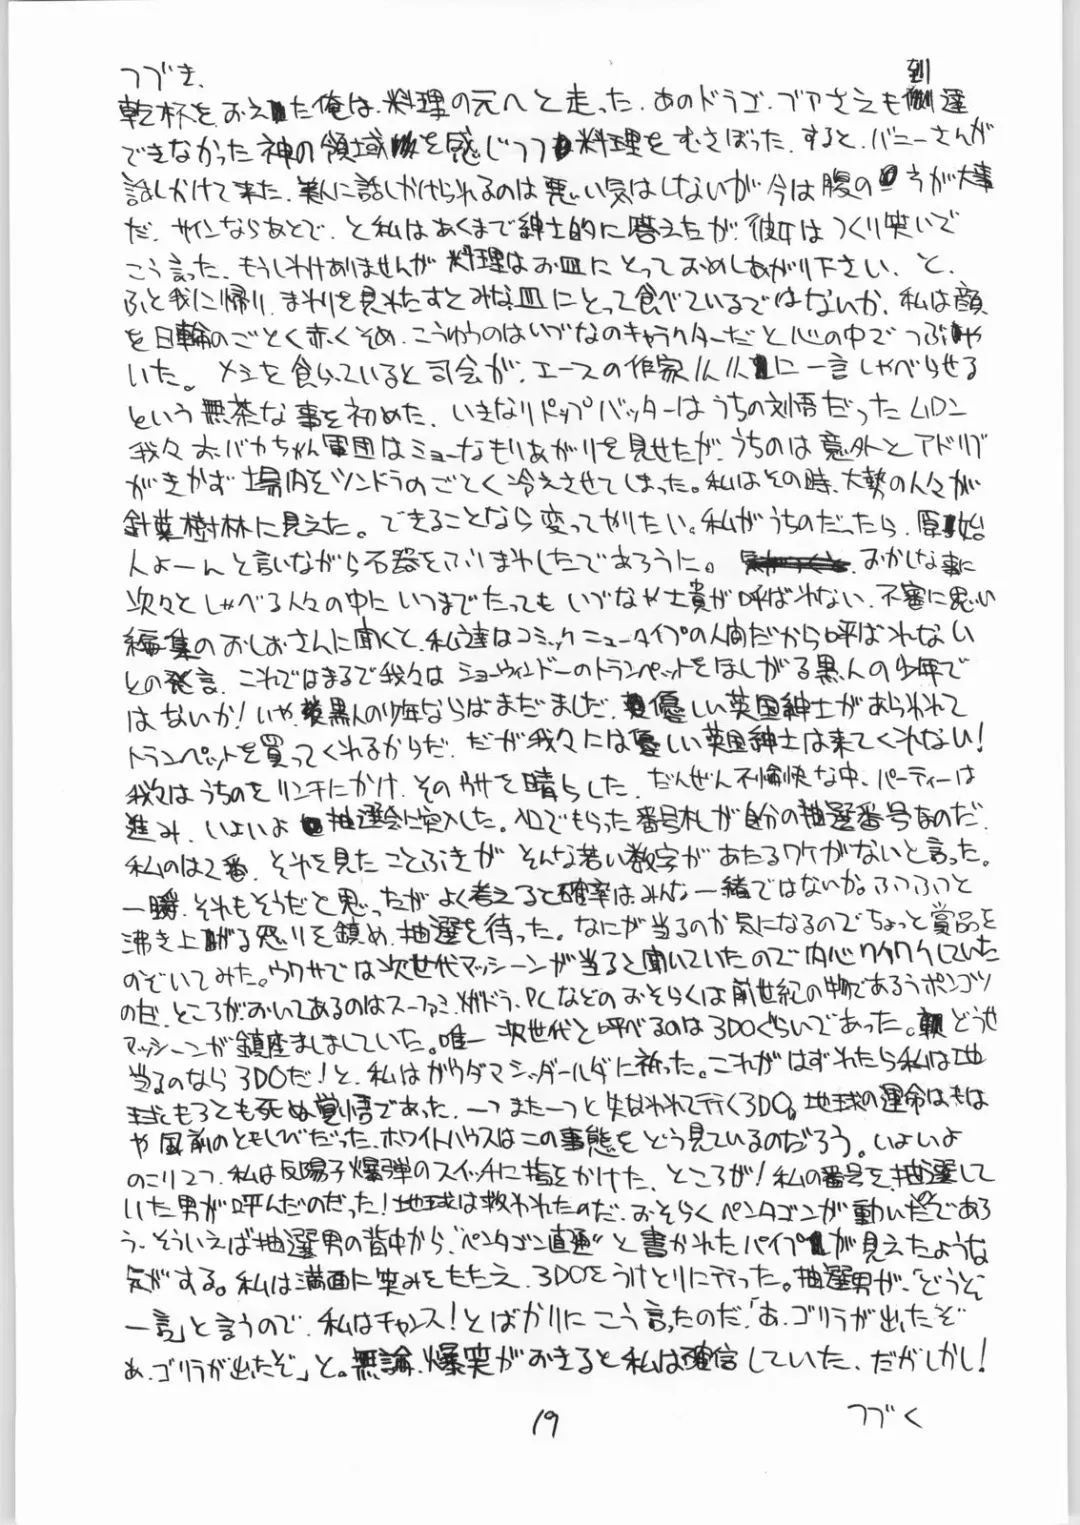 つづき、
乾杯をおえた俺は、料理の元へと走った、あのドラゴ・ブアさえも到達
できなかった神の領域を感じつつ料理をむさぼった、すると、バニーさんが
話しかけて来た、美人に話しかけられるのは悪い気はしないが今は腹のほうが大事
だ、サインならあとで、と私はあくまで紳士的に答えたが、彼女はつくり笑いで
こう言った、もうしわけありませんが料理はお皿にとっておめしあがり下さい、と、
ふと我に帰り、まわりを見わたすとみな皿にとって食べているではないか、私は顔
を日輪のごとく赤くそめ、こうゆうのはいづなのキャラクターだと心の中でつぶや
いた。メシを食らっていると司会が、エースの作家一人一人に一言しゃべらせる
という無茶な事を初めた、いきなりトップバッターはうちの刘悟だった
我々おバカちゃん軍団はミョーなもりあがりを見せたが、うちのは意外とアドリブ
がきかず場内をツンドラのごとく冷えさせてしまった。私はその時、大勢の人々が
針葉樹林に見えた。できることなら変ってやりたい。私がうちのだったら、原始
人よーんと言いながら石器をふりまわしたであろうに。おかしな事に
次々としゃべる人々の中にいつまでたってもいづなや士貴が呼ばれない、不審に思い
編集のおしおさんに聞くと、私達はコミックニュータイプの人間だから呼ばれない
との発言、これではまるで我々はショーウィンドーのトランペットをほしがる黒人の少年で
はないか！いや、黒人の少年ならばまだました、優しい英国紳士があらわれて
トランペットを買ってくれるからだ、だが我々には優しい英国紳士は来てくれない！
我々はうちのをリンチにかけ、そのウサを晴らした、だんぜん不愉快な中、パーティーは
進み、いよいよ抽選会に突入した。入口でもらった番号札が自分の抽選番号なのだ、
私のは2番、それを見たことぶきがそんな若い数字があたるワケがないと言った。
一瞬、それもそうだと思ったがよく考えると確率はみんな一緒ではないか。ふつふつと
沸き上がる怒りを鎮め、抽選を待った。なにが当るのか気になるのでちょっと賞品を
のぞいてみた。ウワサでは次世代マッシーンが当ると聞いていたので内心ワクワクしていた
のだ、ところがおいてあるのはスーファミ、メガドラ、PCなどのおそらくは前世紀の物であろうポンコツ
マッシーンが鎮座ましましていた。唯一次世代と呼べるのは3DOぐらいであった。どうせ
当るのなら3DOだ！と、私はガウダマ・シッダールダに祈った。これがはずれたら私は地
球ともろとも死ぬ覚悟であった、一つまた一つと失なわれて行く3DO。地球の運命はもは
や風前のともしびだった、ホワイトハウスはこの事態をどう見ているのだろう。いよいよ
のこり2つ、私は反陽子爆弾のスイッチに指をかけた、ところが！私の番号を、抽選して
いた男が呼んだのだった！地球は救われたのだ、おそらくペンタゴンが動いたのであろ
う、そういえば抽選男の背中から、“ペンタゴン直通”と書かれたパイプが見えたような
気がする。私は満面に笑みをたたえ、3DOをうけとりに行った。抽選男が、「どうぞ
一言」と言うので、私はチャンス！とばかりにこう言ったのだ、「あ、ゴリラが出たぞ
あ、ゴリラが出たぞ」と。無論、爆笑がおきると私は確信していた、だがしかし！
つづく
19